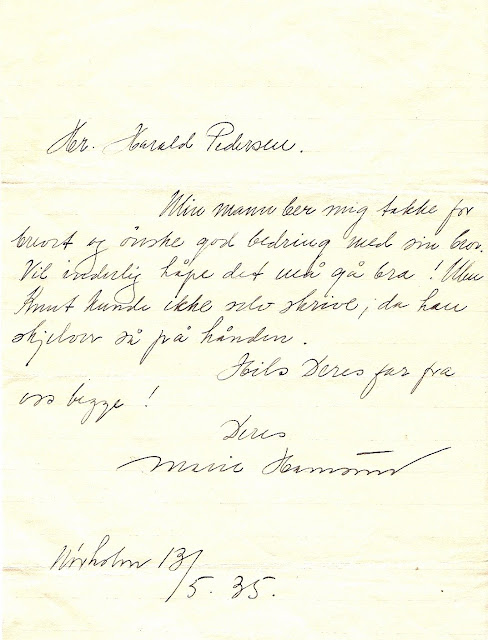 Hr. Harald Pedersen.
Min mann ber mig takke for
brevet og ønske god bedring med sin bror.
Vil inderlig håpe det må gå bra! Men
Knut kunde ikke selv skrive, da han
skjelver så på hånden.
Hils Deres far fra
oss begge!
Deres
Marie Hamsun
Nørholm 13/
5. 35.